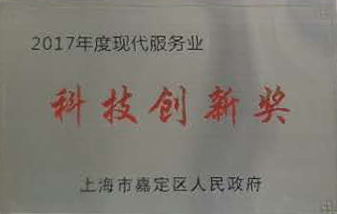 2017年度现代服务业
科技创新奖
上海市嘉定区人民政府